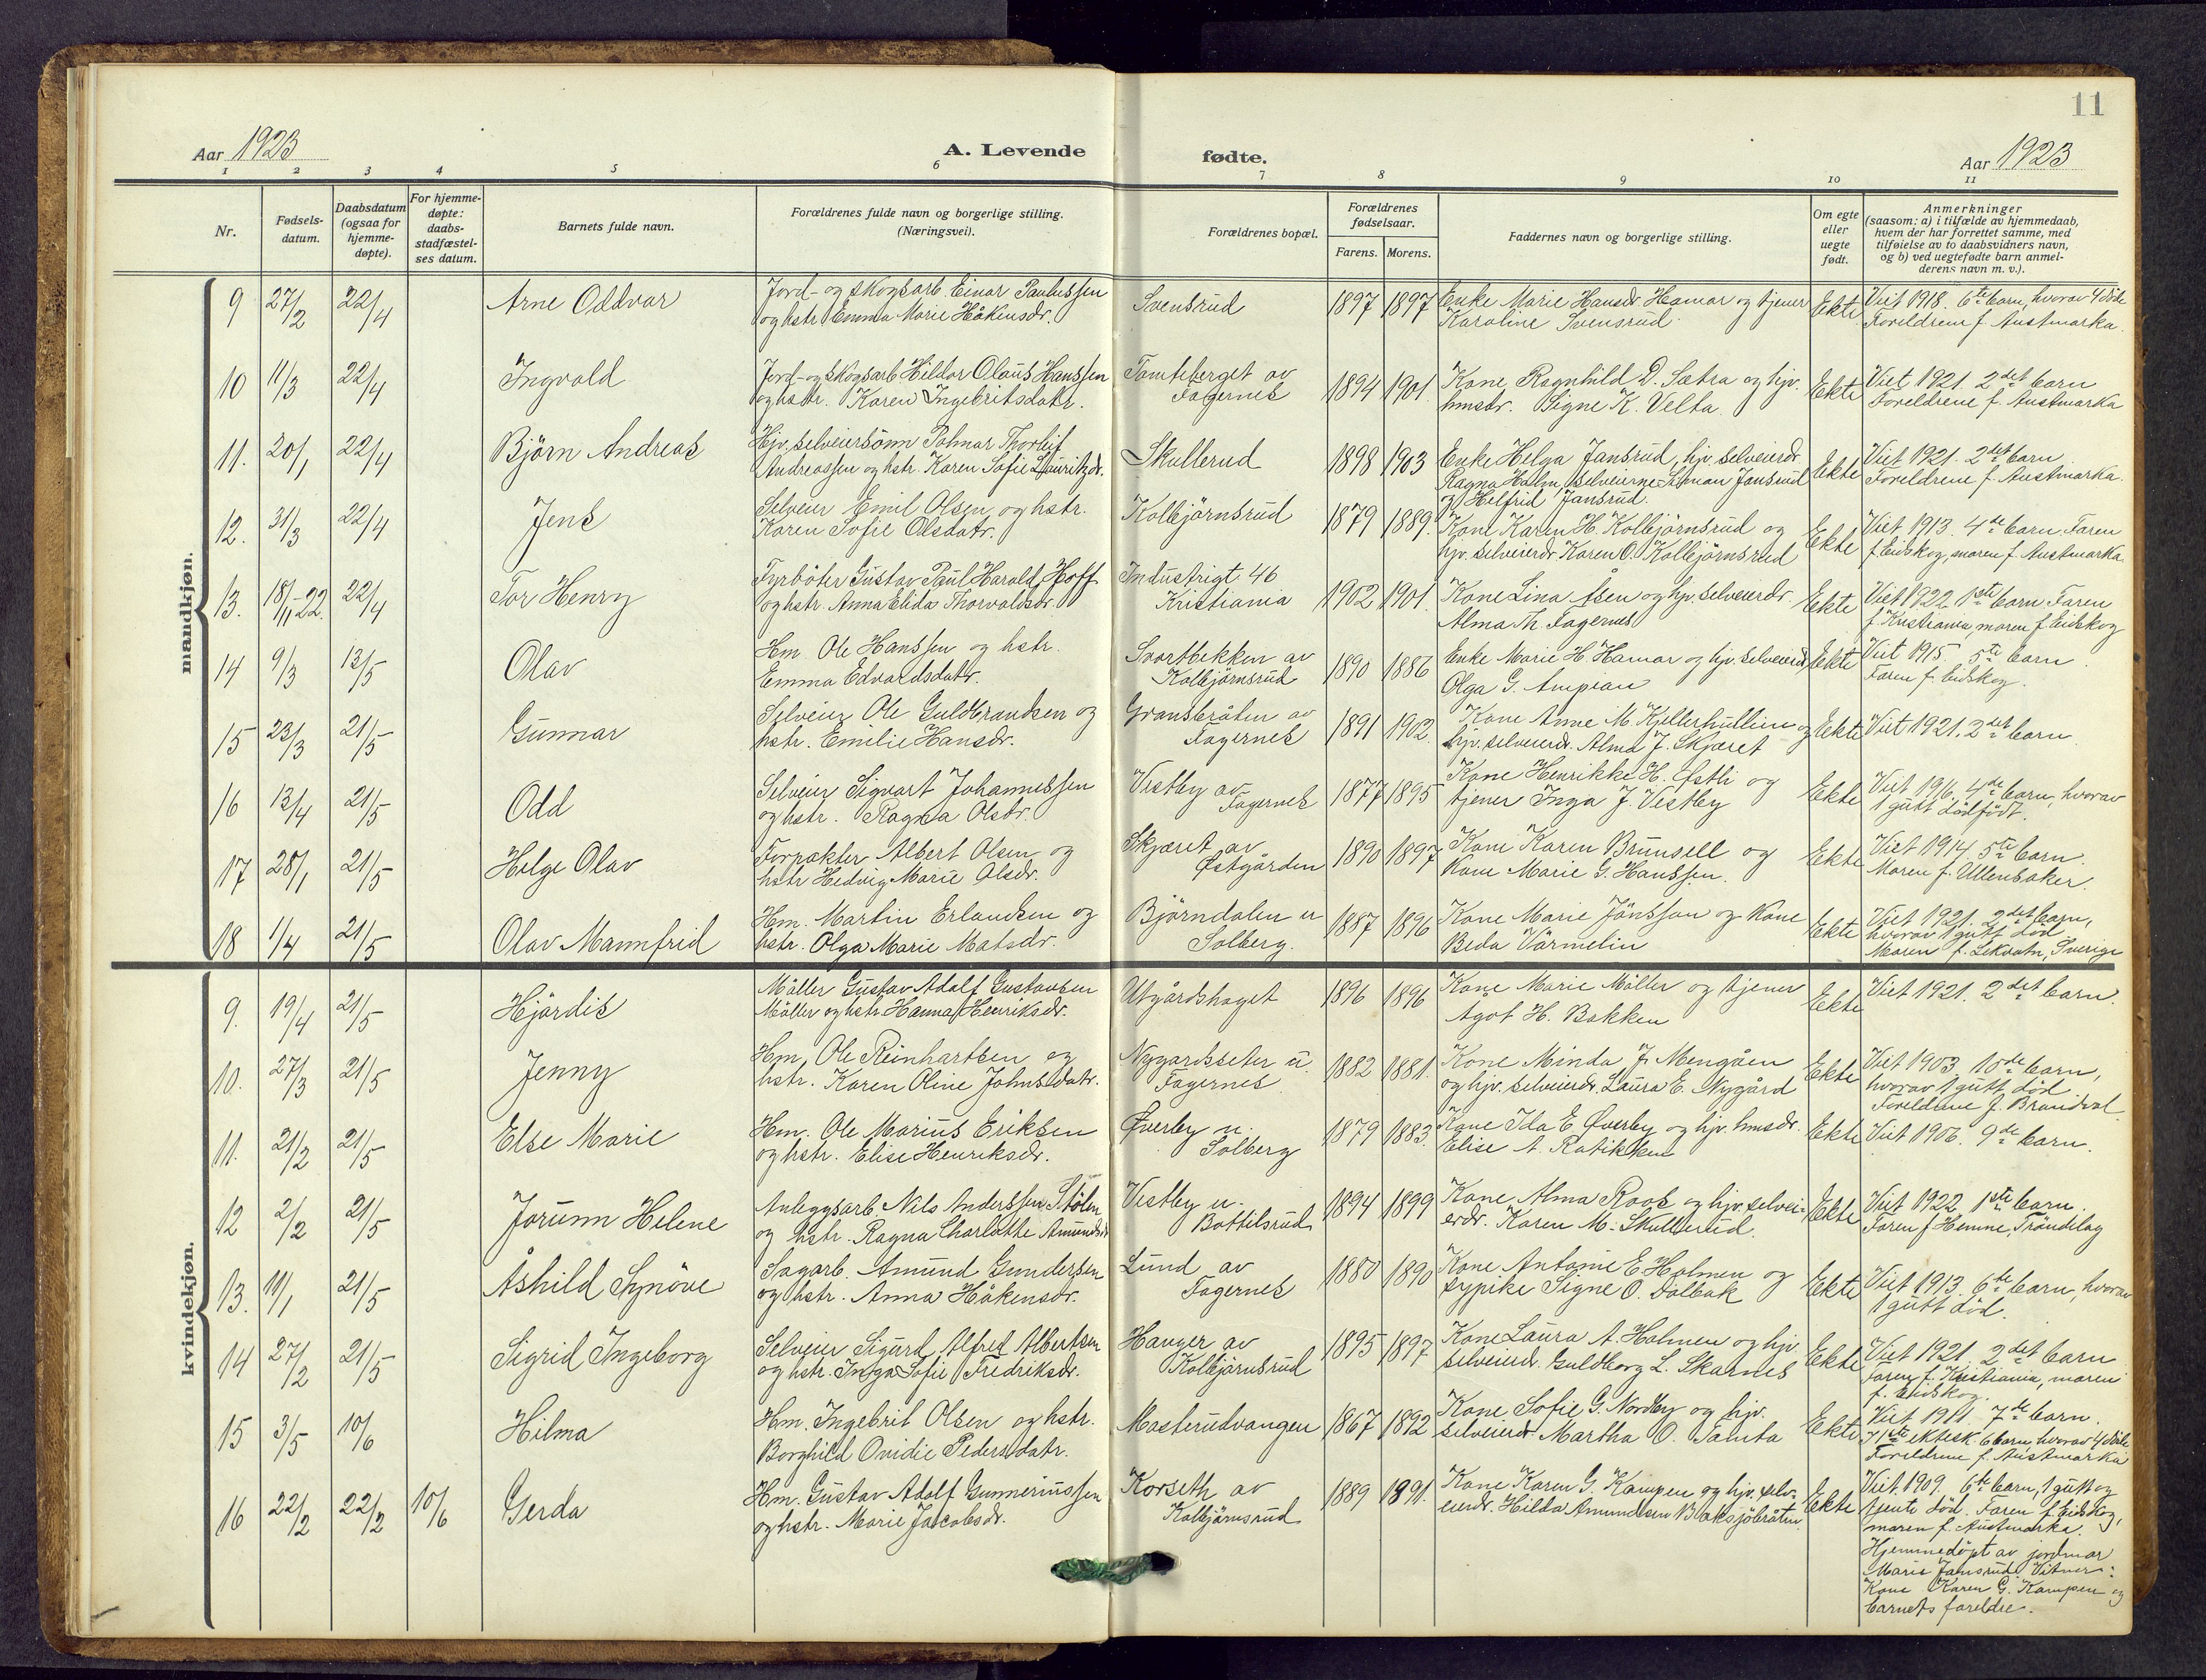 11
Aar 1923
A. Levende fødte.
Aar 1923
1 2 3 4 5 6 7 8 9 10 11
Nr.
Fødsels-
datum.
Daabsdatum
(ogsaa for
hjemme-
døpte).
For hjemme-
døpte:
daabs-
stadfæstel-
ses datum.
Barnets fulde navn.
Forældrenes fulde navn og borgerlige stilling.
(Næringsvei).
Forældrenes bopæl.
Forældrenes
fødselsaar.
Farens. Morens.
Faddernes navn og borgerlige stilling.
Om egte
eller
uegte
født.
Anmerkninger
(saasom: a) i tilfælde av hjemmedaab,
hvem der har forrettet samme, med
tilføielse av to daabsvidners navn,
og b) ved uegtefødte barn anmel-
derens navn m. v.).
mandkjøn.
9 27/2 22/4 Arne Oddvar
Jord- og skogsarb. Einar Paulussen
og hstr. Emma Marie Håkensdr.
Svensrud
1897 1897
Enke Marie Hansdr. Hamar og tjener
Karoline Svensrud.
Ekte
Viet 1918. 6te barn, hvorav 4 døde
Foreldrene f. Austmarka.
10 11/3 22/4 Ingvald
Jord- og skogsarb. Hildor Olaus Hanssen
og hstr. Karen Ingebritsdatr.
Tomteberget av
Fagernes
1894 1901.
Kone Ragnhild D. Sætra og hjv.
hmsdr. Signe K. Velta.
Ekte
Viet 1921. 2det barn
Foreldrene f. Austmarka
11. 20/1 22/4 Björn Andreas
Hjv. selveiersönn Palmar Thorleif
Andreassen og hstr. Karen Sofie Lauritzdr.
Skullerud
1898 1903
Enke Helga Jansrud, hjv. selveierdr.
Ragna Holm, selveierne Simon Jansrud
og Helfrid Jansrud.
Ekte
Viet 1921. 2det barn
Foreldrene f. Austmarka.
12. 31/3 22/4 Jens
Selveier Emil Olsen og hstr.
Karen Sofie Olsdatr.
Kolbjörnsrud
1879 1889.
Kone Karen H. Kolbjörnsrud og
hjv. selveierdr. Karen O. Kolbjörnsrud
Ekte
Viet 1913. 4de barn. Faren
f. Eidskog, moren f. Austmarka.
13. 18/11-22. 22/4 Tor Henry
Fyrböter Gustav Paul Harald Hoff
og hstr. Anna Elida Thorvaldsdr.
Industrigt. 46
Kristiania
1902 1901.
Kone Lina Åsen og hjv. selveierdr.
Alma Th. Fagernes
Ekte
Viet 1922. 1ste barn. Faren
f. Kristiania, moren f. Eidskog
14 9/3 13/5 Olav
Hm. Ole Hanssen og hstr.
Emma Edvardsdatr.
Svartbekken av
Kolbjörnsrud
1890 1886
Enke Marie H. Hamar og hjv. selveierdr.
Olga G. Ampian
Ekte
Viet 1915. 5te barn.
Faren f. Eidskog.
15 23/3 21/5 Gunnar
Selveier Ole Guldbrandsen og
hstr. Emilie Hansdr.
Gransbråten av
Fagernes
1891 1902.
Kone Anne M. Kjellerhullien og
hjv. selveierdr. Alma J. Skjæret
Ekte
Viet 1921. 2det barn
16 13/4 21/5 Odd
Selveier Sigvart Johannessen
og hstr. Ragna Olsdr.
Vestby av
Fagernes
1877 1895
Kone Henrikke H. Østli og
tjener Inga J. Vestby
Ekte
Viet 1916. 4de barn, hvorav
1 gutt dödfödt.
17 28/1 21/5 Helge Olav
Forpakter Albert Olsen og
hstr. Hedvig Marie Olsdr.
Skjæret av
Østgården
1890 1897
Kone Karen Brunsell og
Kone Marie G. Hanssen.
Ekte
Viet 1914. 5te barn.
Moren f. Ullensaker.
18 1/4 21/5 Olav Mannfrid
Hm. Martin Erlandsen og
hstr. Olga Marie Matsdr.
Björndalen u
Solberg.
1887 1896
Kone Marie Jönsson og Kone
Beda Värmelin
Ekte
Viet 1921. 2det barn,
hvorav 1 gutt död.
Moren f. Lekvatn, Sverige
kvindekjøn.
9. 19/4 21/5 Hjördis
Möller Gustav Adolf Gustavsen
Möller og hstr. Hanna Henriksdr.
Utgårdshaget
1896 1896
Kone Marie Möller og tjener
Ågot H. Bakken
Ekte
Viet 1921. 2det barn.
10. 27/3 21/5 Jenny
Hm. Ole Reinhartsen og
hstr. Karen Oline Johnsdatr.
Nygardsseter u.
Fagernes
1882 1881.
Kone Minda J. Mengåen
og hjv. selveierdr. Laura E. Nygård
Ekte
Viet 1903. 10de barn,
hvorav 1 gutt död
Foreldrene f. Brandval
11. 21/2 21/5 Else Marie
Hm. Ole Marius Eriksen
og hstr. Elise Henriksdr.
Øverby u.
Solberg
1879 1883.
Kone Ida E. Øverby og hjv. hmsdr.
Elise A. Ratikken
Ekte
Viet 1906. 9de barn.
12 2/2 21/5 Jorunn Helene
Anleggsarb. Nils Anderssen Stölen
og hstr. Ragna Charlotte Amundsdr.
Vestby u.
Bottilsrud
1894 1899
Kone Alma Roos og hjv. selvei-
erdr. Karen M. Skullerud.
Ekte
Viet 1922. 1ste barn.
Faren f. Hemne, Tröndelag
13. 11/1 21/5 Åshild Synöve
Sagarb. Amund Gundersen
og hstr. Anna Håkensdr.
Lund av
Fagernes
1880 1890
Kone Antonie E. Holmen og
sypike Signe O. Dalbak
Ekte
Viet 1913. 6te barn, hvorav
1 gutt död.
14 27/2 21/5 Sigrid Ingeborg
Selveier Sigurd Alfred Albertsen
og hstr. Inga Sofie Fredriksdr.
Hanger av
Kolbjörnsrud
1895 1897
Kone Laura A. Holmen og hjv.
selveierd. Guldborg L. Skarnes
Ekte
Viet 1921. 2det barn
Faren f. Kristiania, moren
f. Eidskog.
15 3/5 10/6 Hilma
Hm. Ingebrit Olsen og hstr.
Borghild Ovidie Pedersdatr.
Masterudvangen
1867 1892
Kone Sofie G. Nordby og hjv.
selveierdr. Martha O. Tamta
Ekte
Viet 1911. 7de barn.
I 1ste ektesk. 6 barn, hvorav 4 döde
Foreldrene f. Austmarka
16 22/2 22/2 10/6 Gerda
Hm. Gustav Adolf Gunneriussen
og hstr. Marie Jacobsdr.
Korseth av
Kolbjörnsrud
1889 1891.
Kone Karen G. Kampen og hjv. selv-
eierdr. Hilda Amundsen Baksjöbråten.
Ekte
Viet 1909. 6te barn, 1 gutt og
1 jente död. Faren f. Eidskog,
moren f. Austmarka.
Hjemmedöpt av jordmor
Marie Jansrud. Vitner:
Kone Karen G. Kampen og
barnets foreldre.